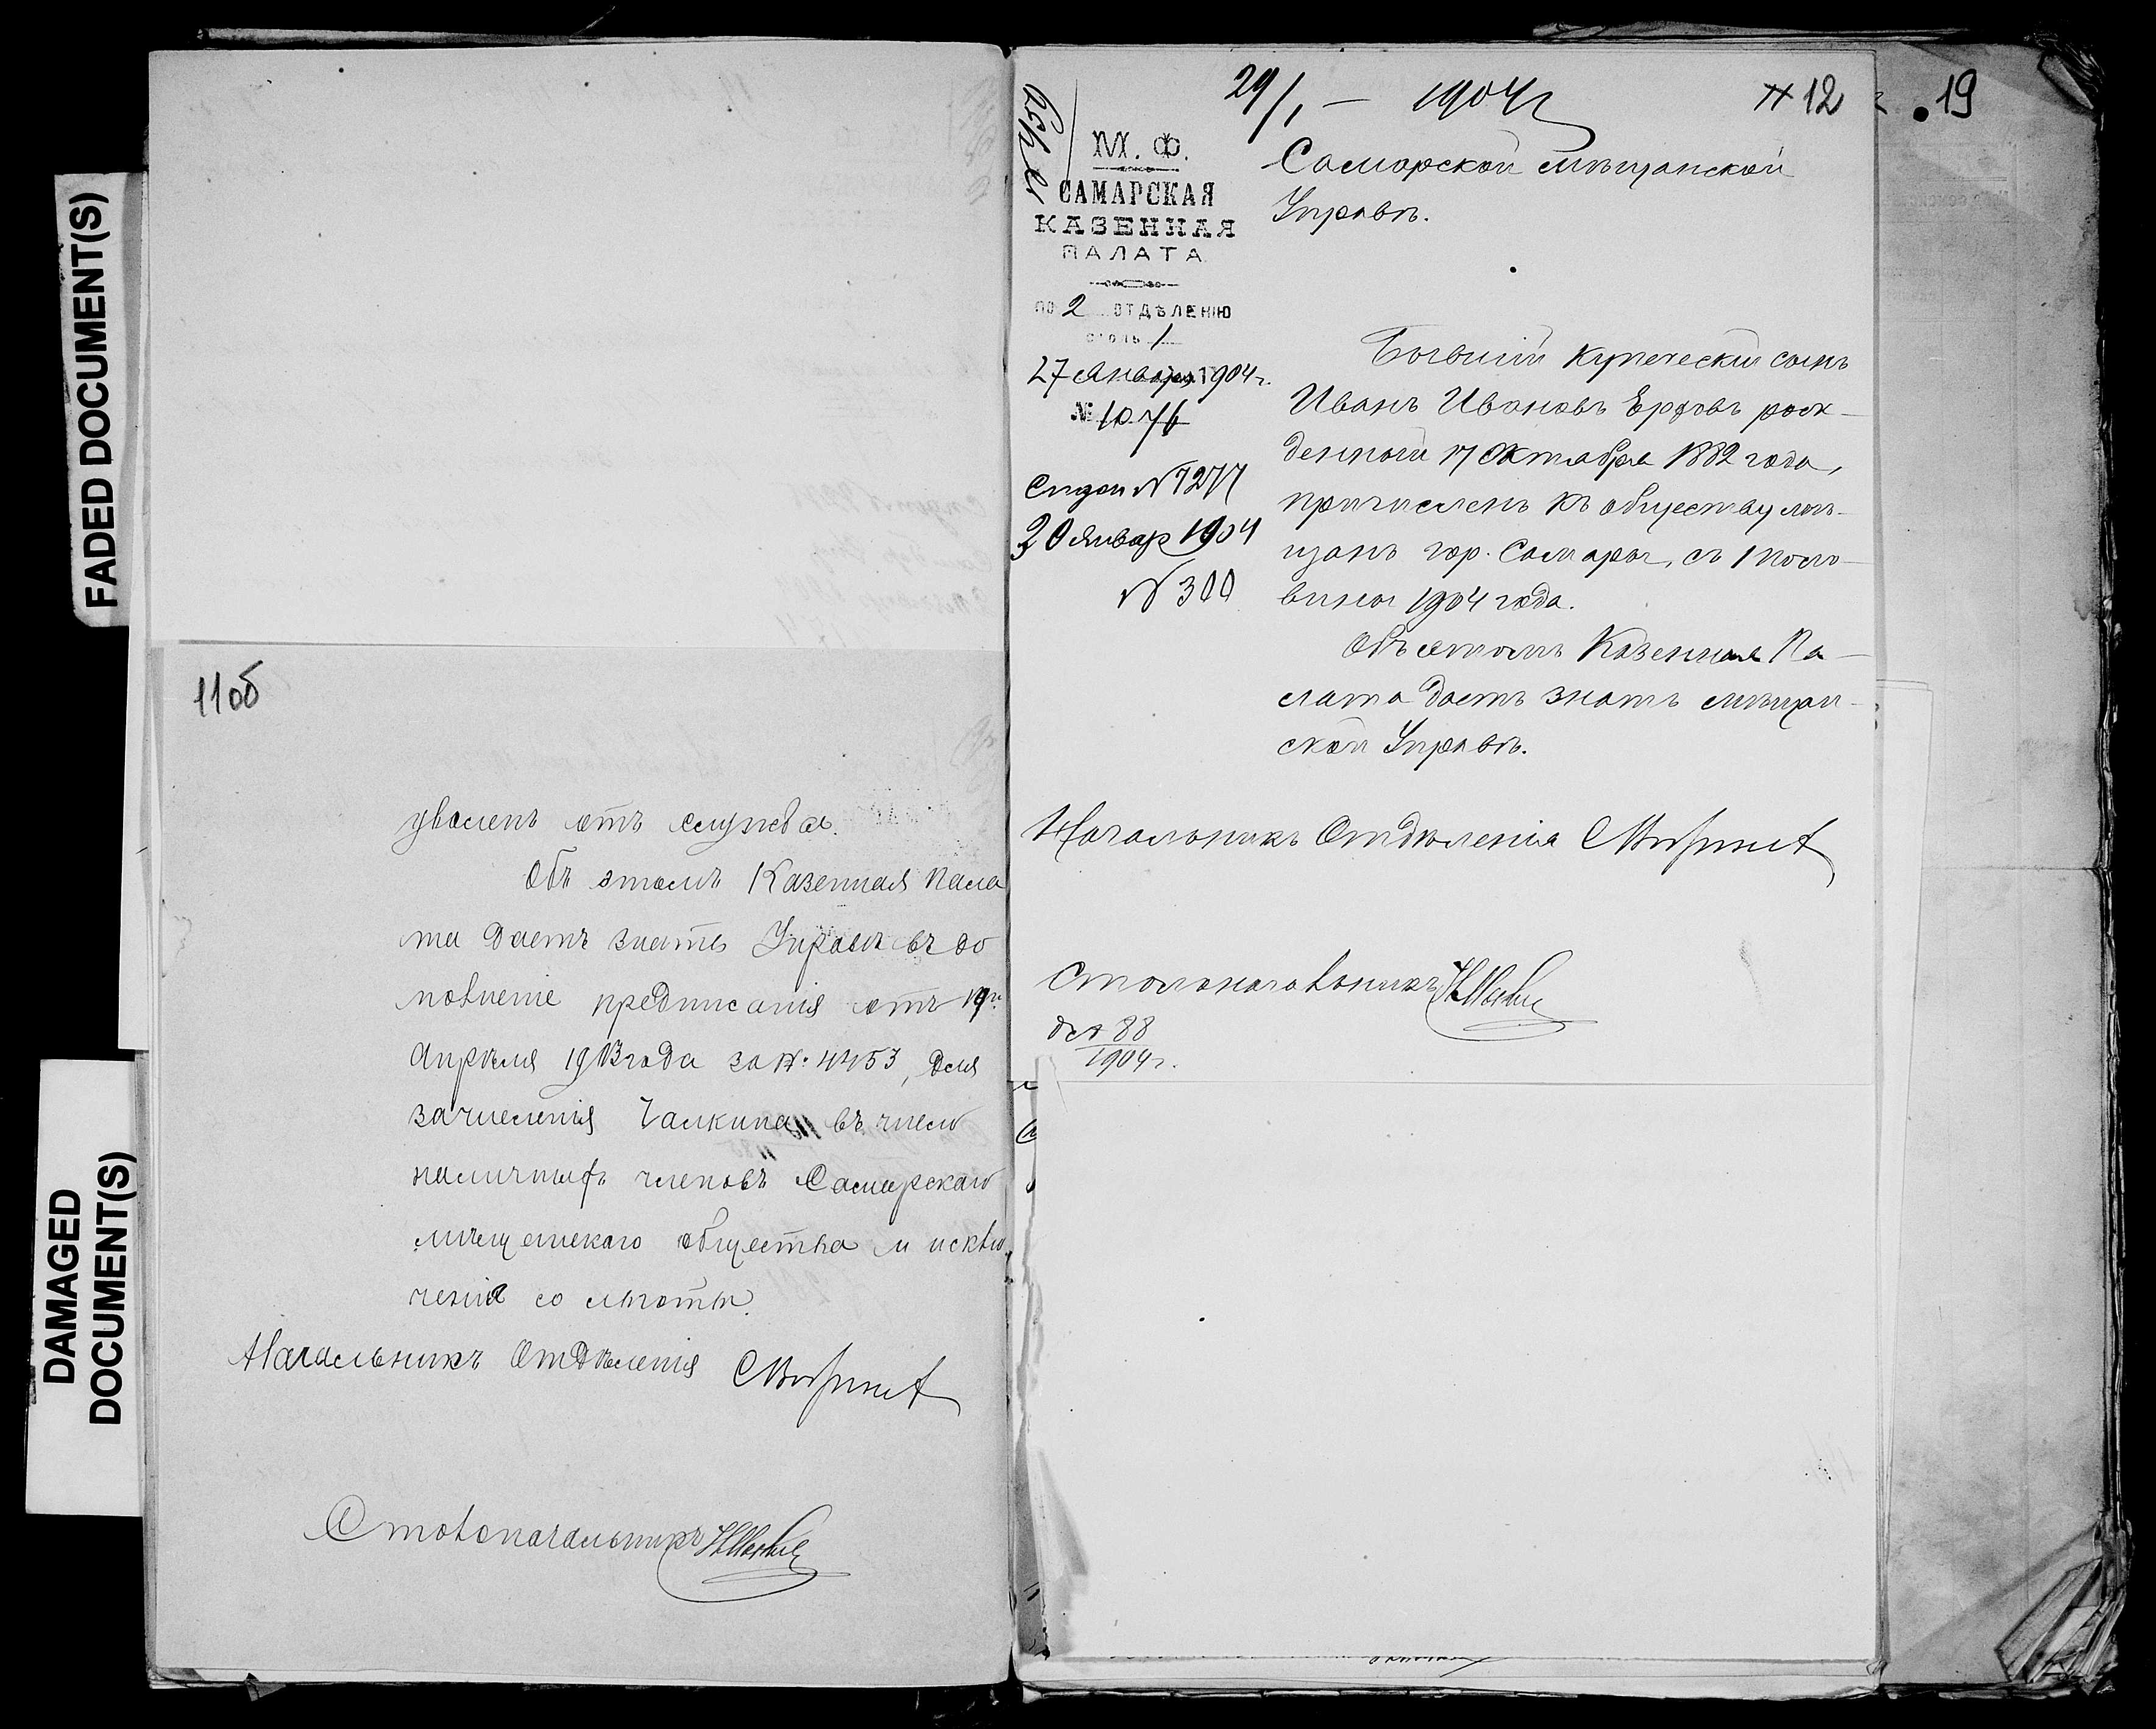 FADED DOCUMENT(S)
DAMAGED
DOCUMENT(S)
11об
уволенъ отъ службы.
Объ этомъ Казенная Пала
та даетъ знать Управѣ въ до
полненіе предписанія отъ 19го
Апрѣля 1903 года за №: 4453, для
зачисленія Галкина въ число
наличныхъ членовъ Самарскаго
мѣщанскаго общества и исклю
ченія со льготы.
Начальникъ Отдѣленія
Столоначальникъ
29/1 — 1904 г
12
19
М. Ф.
САМАРСКАЯ
КАЗЕННАЯ
ПАЛАТА
ПО 2 ОТДѢЛЕНІЮ
столъ 1
27 Января 1904 г.
№ 1076
№ 7277
30 Январ 1904
№ 300
Самарской мѣщанской
Управѣ.
Бывшій купеческій сынъ
Иванъ Ивановъ рож-
денный 17 Октября 1882 года,
причисленъ къ обществу мѣ-
щанъ гор. Самары, съ 1 поло-
вины 1904 года.
Объ этомъ Казенная Па-
лата даетъ знать мѣщан-
ской Управѣ.
Начальникъ Отдѣленія
Столоначальникъ
88
1904 г.